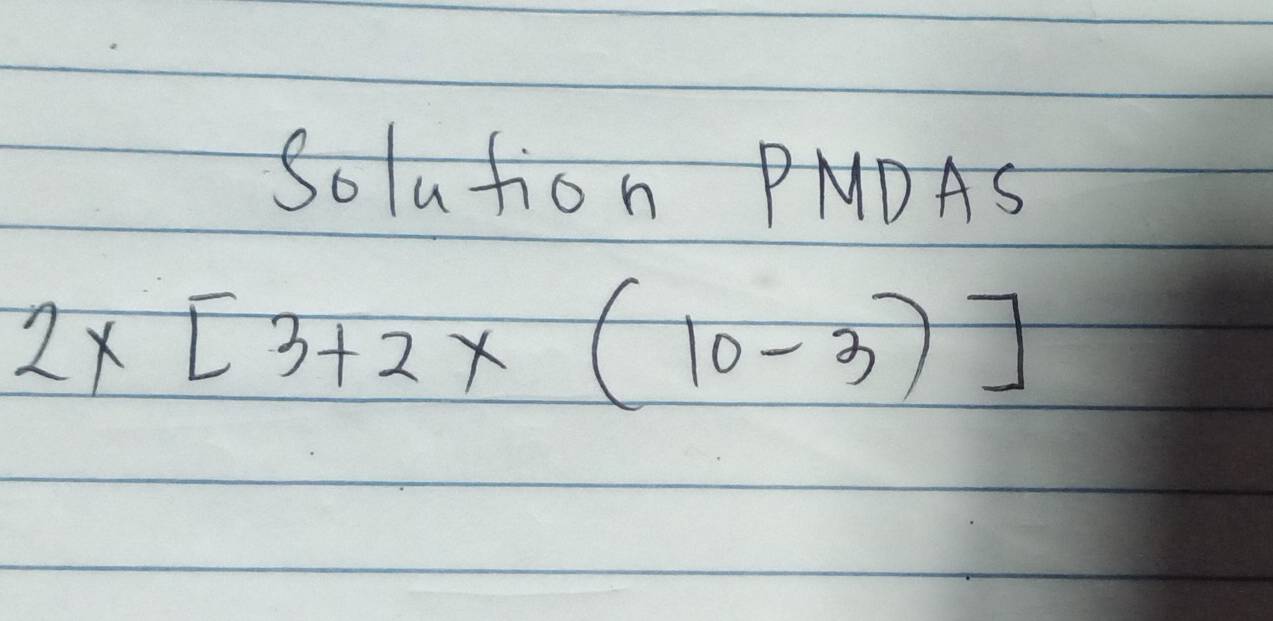 Solution PMDAS
2x [3+2x (10-3)]